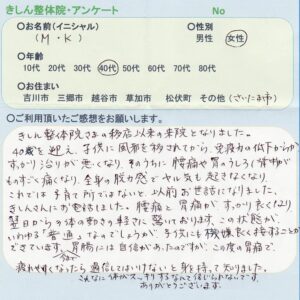 きしん整体院・アンケート　No
○お名前（イニシャル）　○性別
（M・K）　男性　女性
○年齢
10代　20代　30代　40代　50代　60代　70代　80代
○お住まい
吉川市　三郷市　越谷市　草加市　松伏町　その他（さいたま市）
○ご利用頂いたご感想をお願いします。
きしん整体院さまの移店以来の来院となりました。
40歳を迎え、子供に風邪を移されてから、免疫力の低下からか
すっかり治りが悪くなり、そのうちに腰痛や胃のうしろ（背側）が
ものすごく痛くなり、全身の脱力感とヤル気も起きなくなり、
これでは子育て所ではないと、以前お世話になりました、
きしんさんにお電話しました。腰痛と胃痛がすっかり良くなり
翌日からの体の動きの軽さに驚いております。この状態が、
いわゆる"普通"なのでしょうか。子供にも機嫌良く接することが
できています。胃腸には自信があったのですが、この度の胃痛で、
疲れやすくなったら過信してはいけないと身を持って知りました。
こんなに体がスッキリするなんて信じられないです。
ありがとうございます。